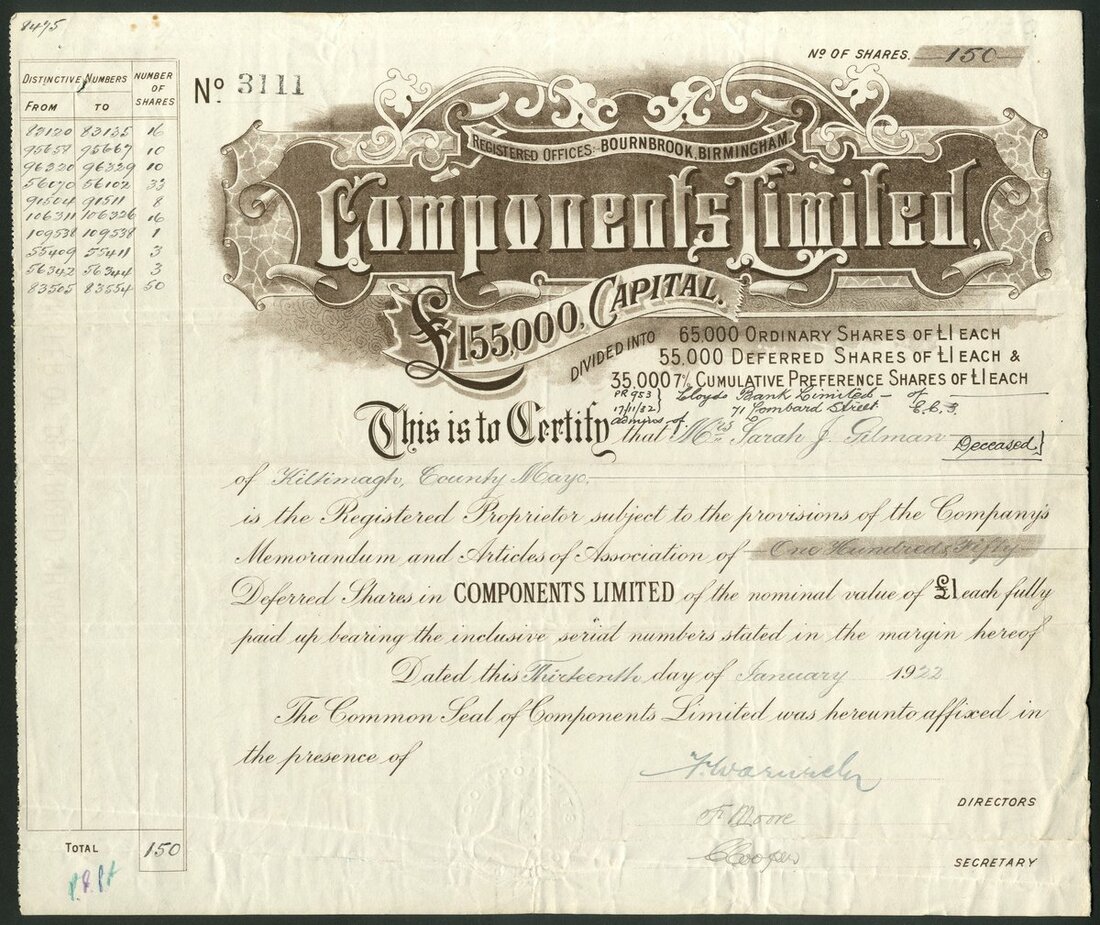 8475
DISTINCTIVE NUMBERS NUMBER OF SHARES
FROM TO
83120 83135 16
95658 95667 10
96320 96329 10
56070 56102 33
91504 91511 8
106311 106326 16
109538 109538 1
55409 55411 3
56342 56344 3
83505 83554 50
TOTAL 150
No 3111
No OF SHARES. 150
REGISTERED OFFICES:- BOURNBROOK, BIRMINGHAM.
Components Limited,
£155,000, CAPITAL.
DIVIDED INTO
65,000 ORDINARY SHARES OF £1 EACH
55,000 DEFERRED SHARES OF £1 EACH &
35,000 7% CUMULATIVE PREFERENCE SHARES OF £1 EACH
PR 953 Lloyds Bank Limited - of
17/11/32 71 Lombard Street E.C.3.
admins of
This is to Certify that Mrs Sarah J. Gilman Deceased
of Kiltimagh, County Mayo.
is the Registered Proprietor subject to the provisions of the Company's
Memorandum and Articles of Association of One Hundred & Fifty
Deferred Shares in COMPONENTS LIMITED of the nominal value of £1 each fully
paid up bearing the inclusive serial numbers stated in the margin hereof
Dated this Thirteenth day of January 1922
The Common Seal of Components Limited was hereunto affixed in
the presence of
F. Moore
DIRECTORS
C Cooper
SECRETARY